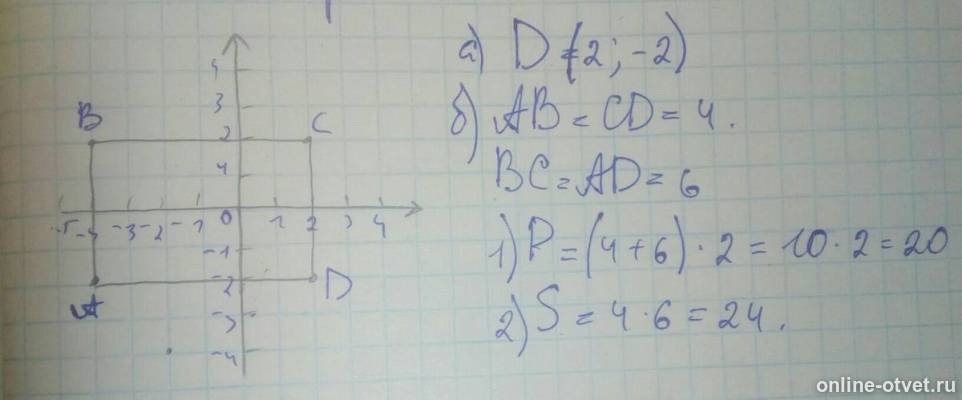 а) D (2; -2)
б) AB = CD = 4.
BC = AD = 6
1) P = (4 + 6) · 2 = 10 · 2 = 20
2) S = 4 · 6 = 24.
4
3
B 2 C
-5 -4 -3 -2 -1 0 1 2 3 4
-1
A -2 D
-3
-4
online-otvet.ru